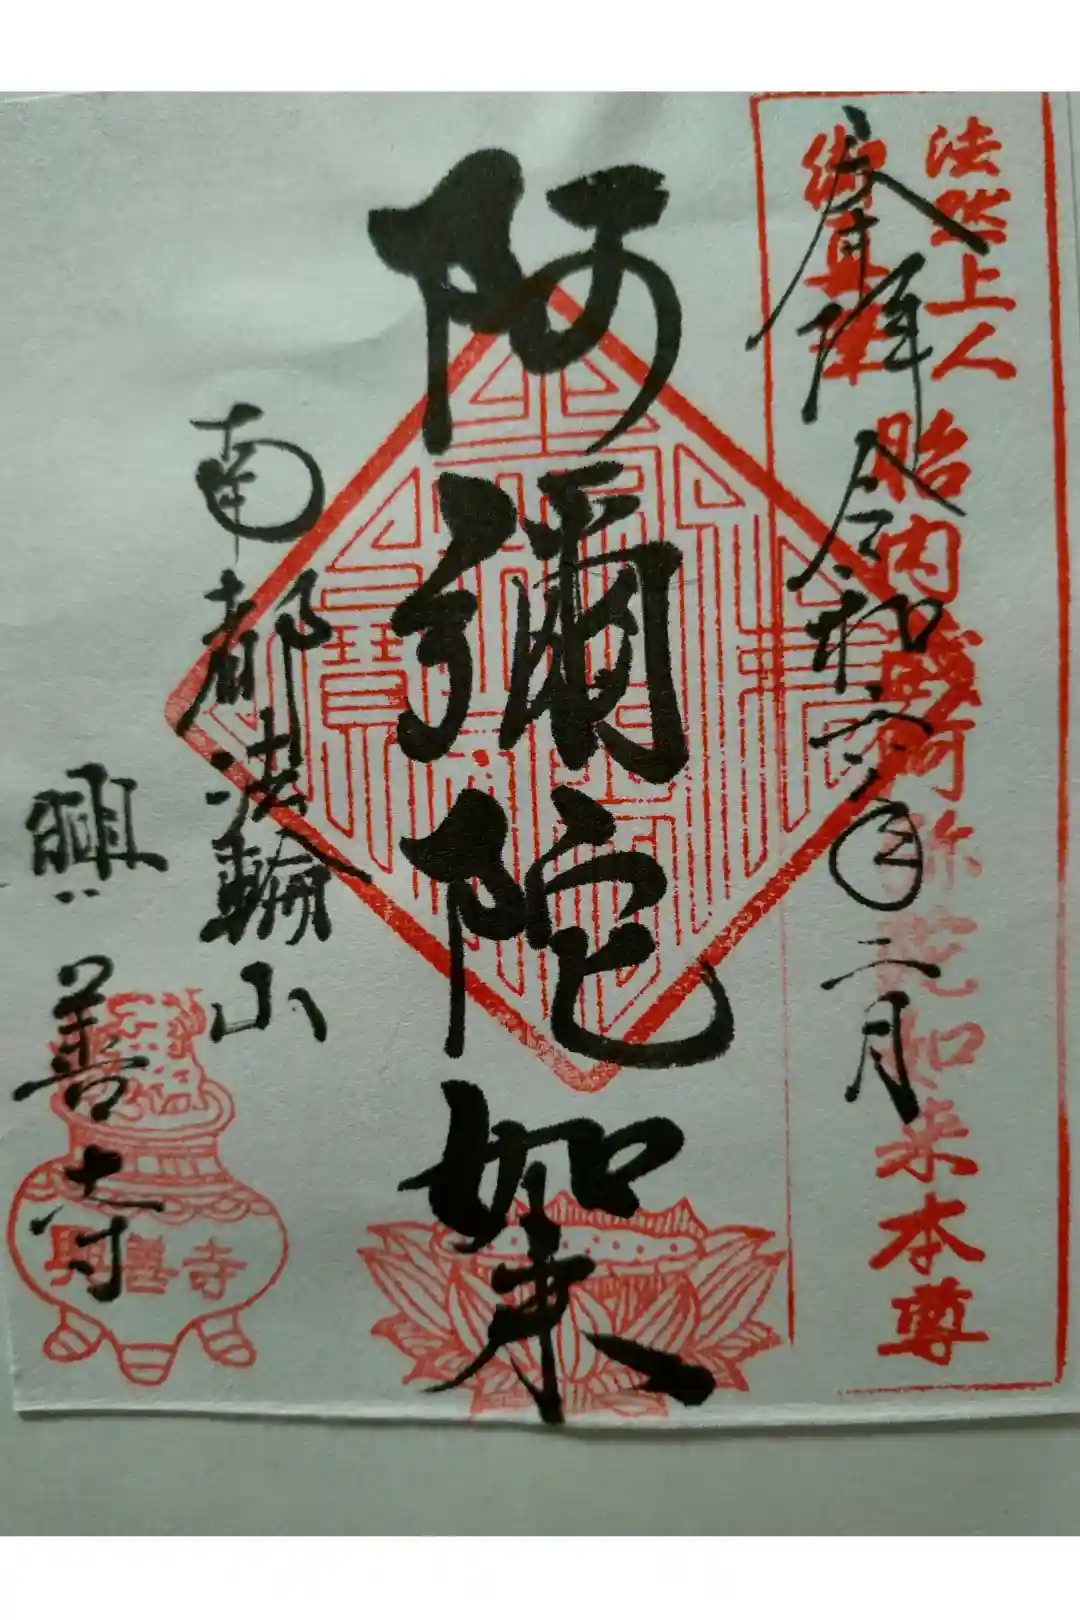 法然上人
御真筆
胎内蔵阿弥陀如来本尊
奉拝 令和六年二月
阿彌陀如来
南都法輪山
興善寺
興善寺